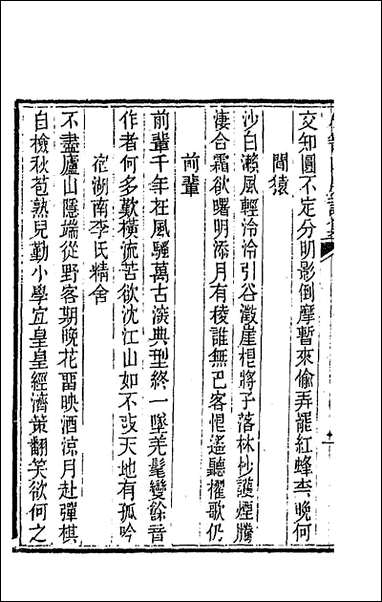 交知圓不定分明影倒摩暫來偷弄罷紅蜂去晚何
聞猿
沙白瀨風輕泠泠引谷澂崖棍將子落林抄護煙騰
淒合霜欲曙明添月有稜誰無巴客恨遙聽櫂歌仍
前輩
前輩千年在風騷萬古演典型終一墜羌髦變餘音
作者何多歎橫流苦欲沈江山如不敔天地有孤吟
宿湖南李氏精舍
不盡廬山隱端從野客期晚花畱映酒涼月赴彈棋
自檢秋苞熟兒勤小學宜皇皇經濟策翻笑欲何之